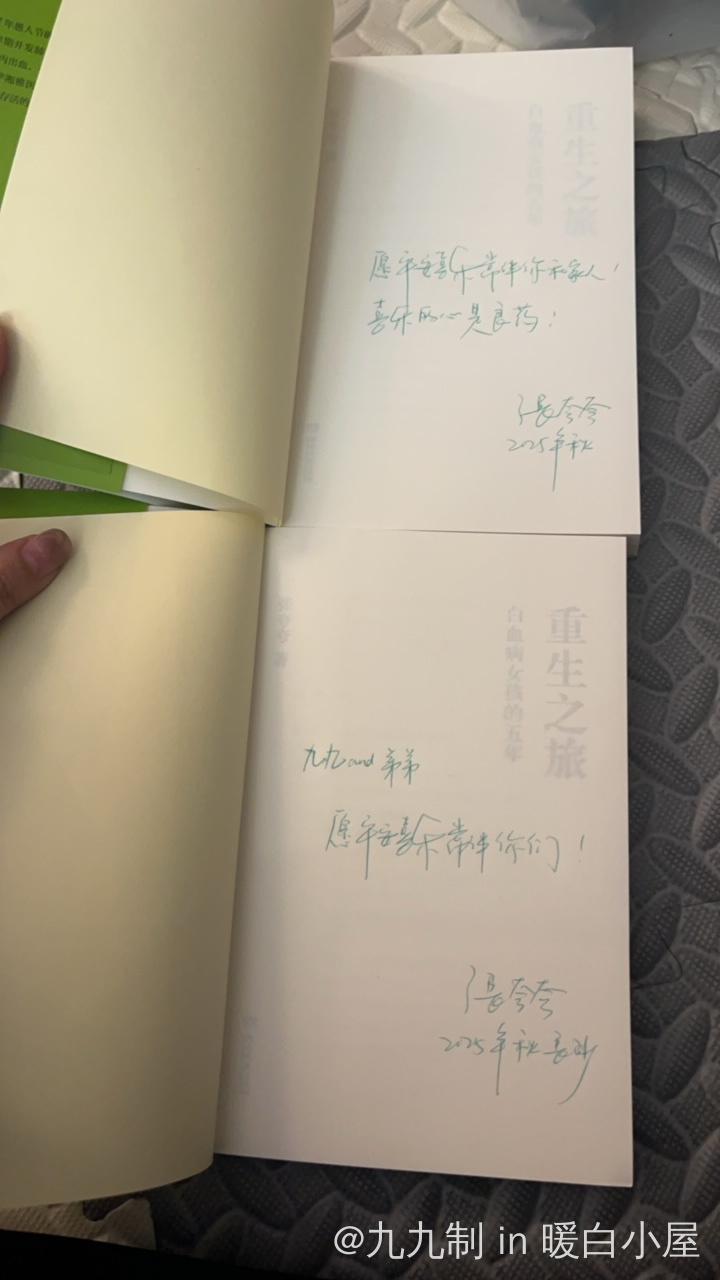 年愚人节
内出血,
湘雅医
存活的
重生之旅
白血病女孩的五年
愿平安喜乐常伴你和家人!
喜乐的心是良药!
张夸夸
2025年秋
重生之旅
白血病女孩的五年
九九and弟弟
愿平安喜乐常伴你们!
张夸夸
2025年秋长沙
@九九制 in 暖白小屋